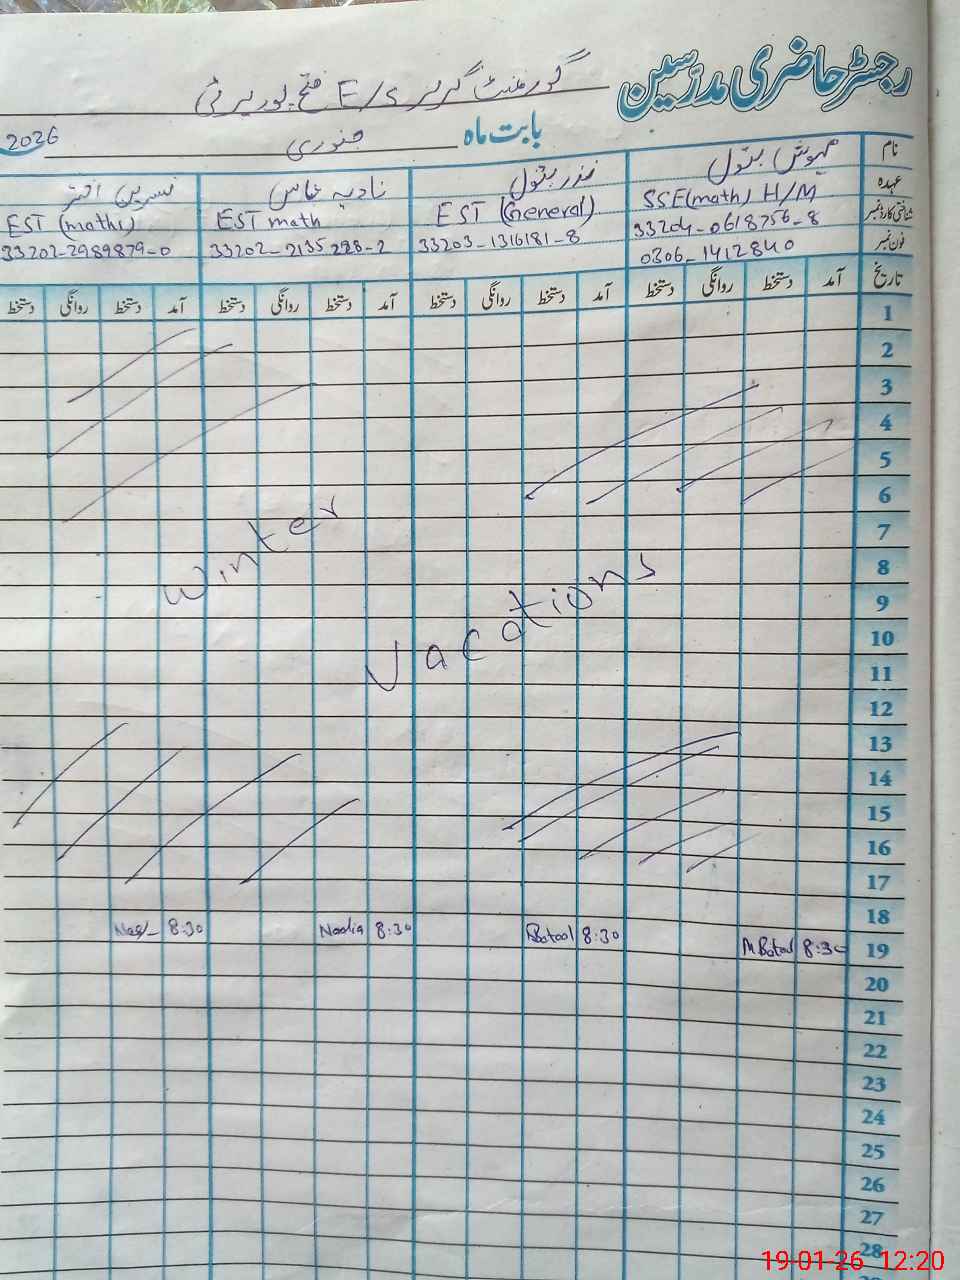 رجسٹر حاضری مدرسین
گورنمنٹ گرلز E/S فتح پور
بابت ماہ جنوری 2026
نام مہوش بتول نذر بتول نادیہ عباس نسرین اختر
عہدہ SSE(math) H/M EST (General) EST math EST (maths)
شناختی کارڈ نمبر 33204-0618756-8 33203-1316181-8 33202-2135228-2 33202-2989879-0
فون نمبر 0306-1412840
تاریخ آمد دستخط روانگی دستخط آمد دستخط روانگی دستخط آمد دستخط روانگی دستخط آمد دستخط روانگی دستخط
1
2
3
4
5
6
7
8
9
10
11
12
13
14
15
16
17
18
19
20
21
22
23
24
25
26
27
28
Winter
Vacations
8:30 Nadia 8:30 Batool 8:30 M Batool 8:30
19-01-26 12:20